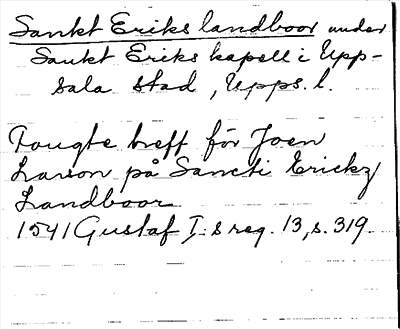 Sankt Eriks landboor under
Sankt Eriks kapell i Upp-
sala stad, Upps. l.
Fougte breff för Joen
Larson på Sancti Erickz
Landboor
1541 Gustaf I:s reg. 13, s. 319.